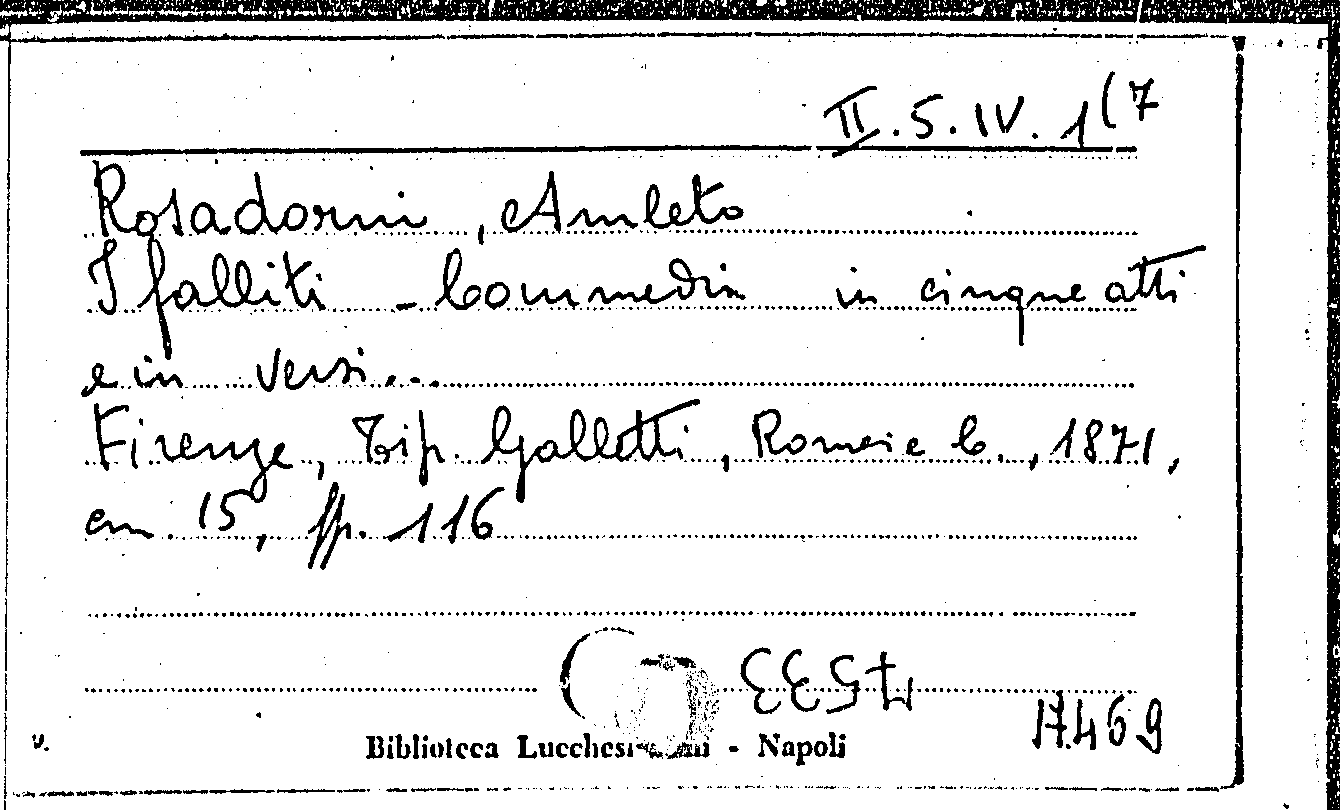 II.5.IV.1(7
Rosadorni, Amleto
I falliti - Commedia in cinque atti
e in versi...
Firenze, Tip. Galletti, Romei e C., 1871,
cm. 15, pp. 116
7533
17469
v.
Biblioteca Lucchesi - Napoli